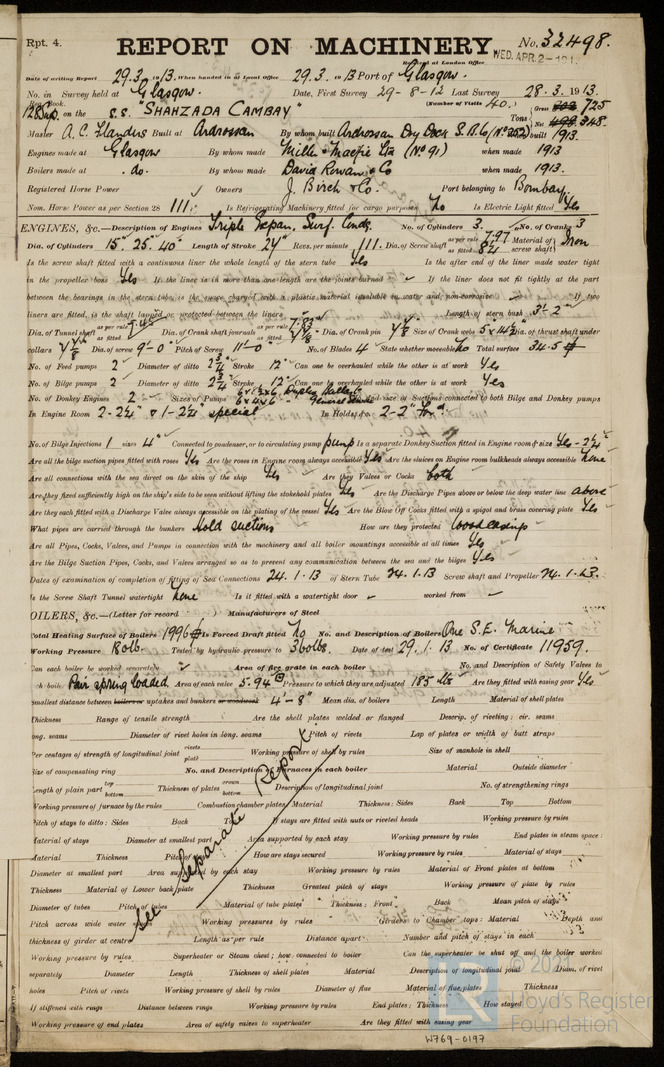 Rpt. 4.
REPORT ON MACHINERY No. 32498.
Received at London Office WED. APR. 2 - 191
Date of writing Report 29.3.1913. When handed in at Local Office 29.3.1913 Port of Glasgow.
No. in Survey held at Glasgow. Date, First Survey 29-8-12 Last Survey 28.3.1913.
Reg. Book. (Number of Visits 40.)
on the S.S. "SHAHZADA CAMBAY" Tons Gross 725 Net 348.
Master A. C. Flanders Built at Ardrossan By whom built Ardrossan Dry Dock S.B. Co (No 252) When built 1913.
Engines made at Glasgow By whom made Miller & Macfie Ltd (No 91) when made 1913
Boilers made at do. By whom made David Rowan & Co when made 1913.
Registered Horse Power Owners J. Birch & Co. Port belonging to Bombay.
Nom. Horse Power as per Section 28 111. Is Refrigerating Machinery fitted for cargo purposes No Is Electric Light fitted Yes
ENGINES, &c.—Description of Engines Triple Expan. Surf. Condg. No. of Cylinders 3. No. of Cranks 3
Dia. of Cylinders 15" 25" 40" Length of Stroke 24" Revs. per minute 111. Dia. of Screw shaft as per rule 7.97 as fitted 8¼ Material of screw shaft Iron
Is the screw shaft fitted with a continuous liner the whole length of the stern tube Yes Is the after end of the liner made water tight
in the propeller boss Yes If the liner is in more than one length are the joints burned If the liner does not fit tightly at the part
between the bearings in the stern tube, is the space charged with a plastic material insoluble in water and non-corrosive If two
liners are fitted, is the shaft lapped or protected between the liners Length of stern bush 3'-2"
Dia. of Tunnel shaft as per rule as fitted Dia. of Crank shaft journals as per rule as fitted 7⅞ Dia. of Crank pin 7⅞ Size of Crank webs 5 x 14½ Dia. of thrust shaft under
collars 7⅞ Dia. of screw 9'-0" Pitch of Screw 11'-0" No. of Blades 4 State whether moveable No Total surface 34.5
No. of Feed pumps 2 Diameter of ditto 2¾" Stroke 12" Can one be overhauled while the other is at work Yes
No. of Bilge pumps 2 Diameter of ditto 2¾" Stroke 12" Can one be overhauled while the other is at work Yes
No. of Donkey Engines 2 Sizes of Pumps No. and size of Suctions connected to both Bilge and Donkey pumps
In Engine Room 2-2¼" & 1-2¼" special In Holds, &c. 2-2"
No. of Bilge Injections 1 sizes 4" Connected to condenser, or to circulating pump pump Is a separate Donkey Suction fitted in Engine room & size Yes - 2¼"
Are all the bilge suction pipes fitted with roses Yes Are the roses in Engine room always accessible Yes Are the sluices on Engine room bulkheads always accessible None
Are all connections with the sea direct on the skin of the ship Yes Are they Valves or Cocks both
Are they fixed sufficiently high on the ship's side to be seen without lifting the stokehold plates Yes Are the Discharge Pipes above or below the deep water line above
Are they each fitted with a Discharge Valve always accessible on the plating of the vessel Yes Are the Blow Off Cocks fitted with a spigot and brass covering plate Yes
What pipes are carried through the bunkers Hold suctions How are they protected Wood casings
Are all Pipes, Cocks, Valves, and Pumps in connection with the machinery and all boiler mountings accessible at all times Yes
Are the Bilge Suction Pipes, Cocks, and Valves arranged so as to prevent any communication between the sea and the bilges Yes
Dates of examination of completion of fitting of Sea Connections 24.1.13 of Stern Tube 24.1.13 Screw shaft and Propeller 24.1.13.
Is the Screw Shaft Tunnel watertight None Is it fitted with a watertight door worked from
OILERS, &c.—(Letter for record ) Manufacturers of Steel
Total Heating Surface of Boilers 1996 Is Forced Draft fitted No No. and Description of Boilers One S.E. Marine
Working Pressure 180lb. Tested by hydraulic pressure to 360lbs. Date of test 29.1.13 No. of Certificate 11959.
Can each boiler be worked separately Area of fire grate in each boiler No. and Description of Safety Valves to
ch boiler Pair spring loaded Area of each valve 5.94 Pressure to which they are adjusted 185 lbs Are they fitted with easing gear Yes
Smallest distance between boilers or uptakes and bunkers or woodwork 4'-8" Mean dia. of boilers Length Material of shell plates
Thickness Range of tensile strength Are the shell plates welded or flanged Descrip. of riveting: cir. seams
ong. seams Diameter of rivet holes in long. seams Pitch of rivets Lap of plates or width of butt straps
Per centages of strength of longitudinal joint rivets plate Working pressure of shell by rules Size of manhole in shell
Size of compensating ring No. and Description of Furnaces in each boiler Material Outside diameter
Length of plain part top bottom Thickness of plates crown bottom Description of longitudinal joint No. of strengthening rings
Working pressure of furnace by the rules Combustion chamber plates: Material Thickness: Sides Back Top Bottom
Pitch of stays to ditto: Sides Back Top If stays are fitted with nuts or riveted heads Working pressure by rules
Material of stays Diameter at smallest part Area supported by each stay Working pressure by rules End plates in steam space:
Material Thickness Pitch of stays How are stays secured Working pressure by rules Material of stays
Diameter at smallest part Area supported by each stay Working pressure by rules Material of Front plates at bottom
Thickness Material of Lower back plate Thickness Greatest pitch of stays Working pressure of plate by rules
Diameter of tubes Pitch of tubes Material of tube plates Thickness: Front Back Mean pitch of stays
See Separate Report
Pitch across wide water Working pressures by rules Girders to Chamber tops: Material Depth and
thickness of girder at centre Length as per rule Distance apart Number and pitch of stays in each
Working pressure by rules Superheater or Steam chest; how connected to boiler Can the superheater be shut off and the boiler worked
separately Diameter Length Thickness of shell plates Material Description of longitudinal joint Diam. of rivet
holes Pitch of rivets Working pressure of shell by rules Diameter of flue Material of flue plates Thickness
If stiffened with rings Distance between rings Working pressure by rules End plates: Thickness How stayed
Working pressure of end plates Area of safety valves to superheater Are they fitted with easing gear
© 2021
Lloyd's Register
Foundation
W769-0197